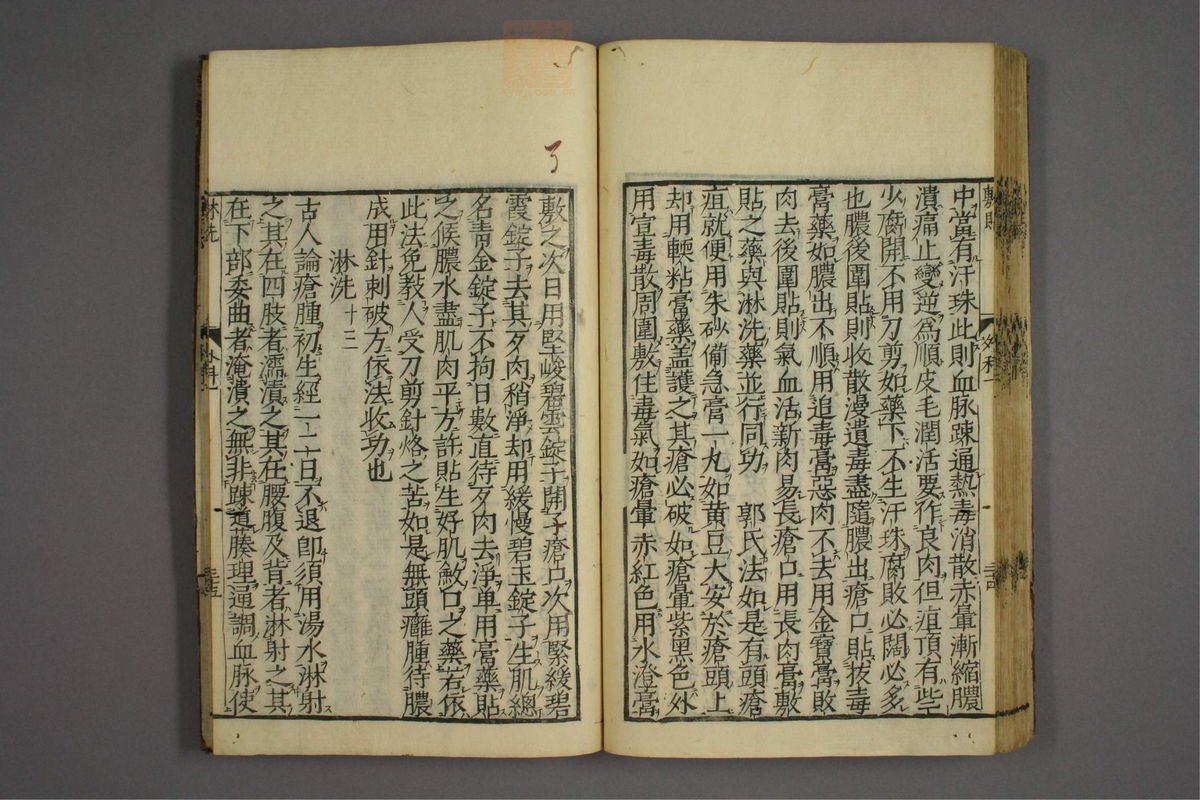 敷貼
中當有汗珠此則血脉踈通熱毒消散赤暈漸縮膿
潰痛止變逆爲順皮毛潤活要作良肉但疽頂有些
少腐開不用刀剪如藥下不生汗珠腐敗必闊必多
也膿後圍貼則收散漫遺毒盡隨膿出瘡口貼拔毒
膏藥如膿出不順用追毒膏惡肉不去用金寶膏敗
肉去後圍貼則氣血活新肉易長瘡口用長肉膏敷
貼之藥與淋洗藥並行同功　郭氏法如是有頭瘡
疽就便用朱砂備急膏一丸如黄豆大安於瘡頭上
却用輭粘膏藥盖護之其瘡必破如瘡暈紫黑色外
用宣毒散周圍敷住毒氣如瘡暈赤紅色用水澄膏
敷之次日用堅峻碧雲錠子開子瘡口次用緊緩碧
霞錠子去其歹肉稍淨却用緩慢碧玉錠子生肌總
名青金錠子不拘日數直待歹肉去淨单用膏藥貼
之候膿水盡肌肉平方許貼生好肌斂口之藥若依
此法免教人受刀剪針烙之苦如是無頭癰腫待膿
成用針刺破方依法收功也
淋洗十三
古人論瘡腫初生經一二日不退卽須用湯水淋射
之其在四肢者濡漬之其在腰腹及背者淋射之其
在下部委曲者淹漬之無非踈道腠理通調血脉使
淋洗